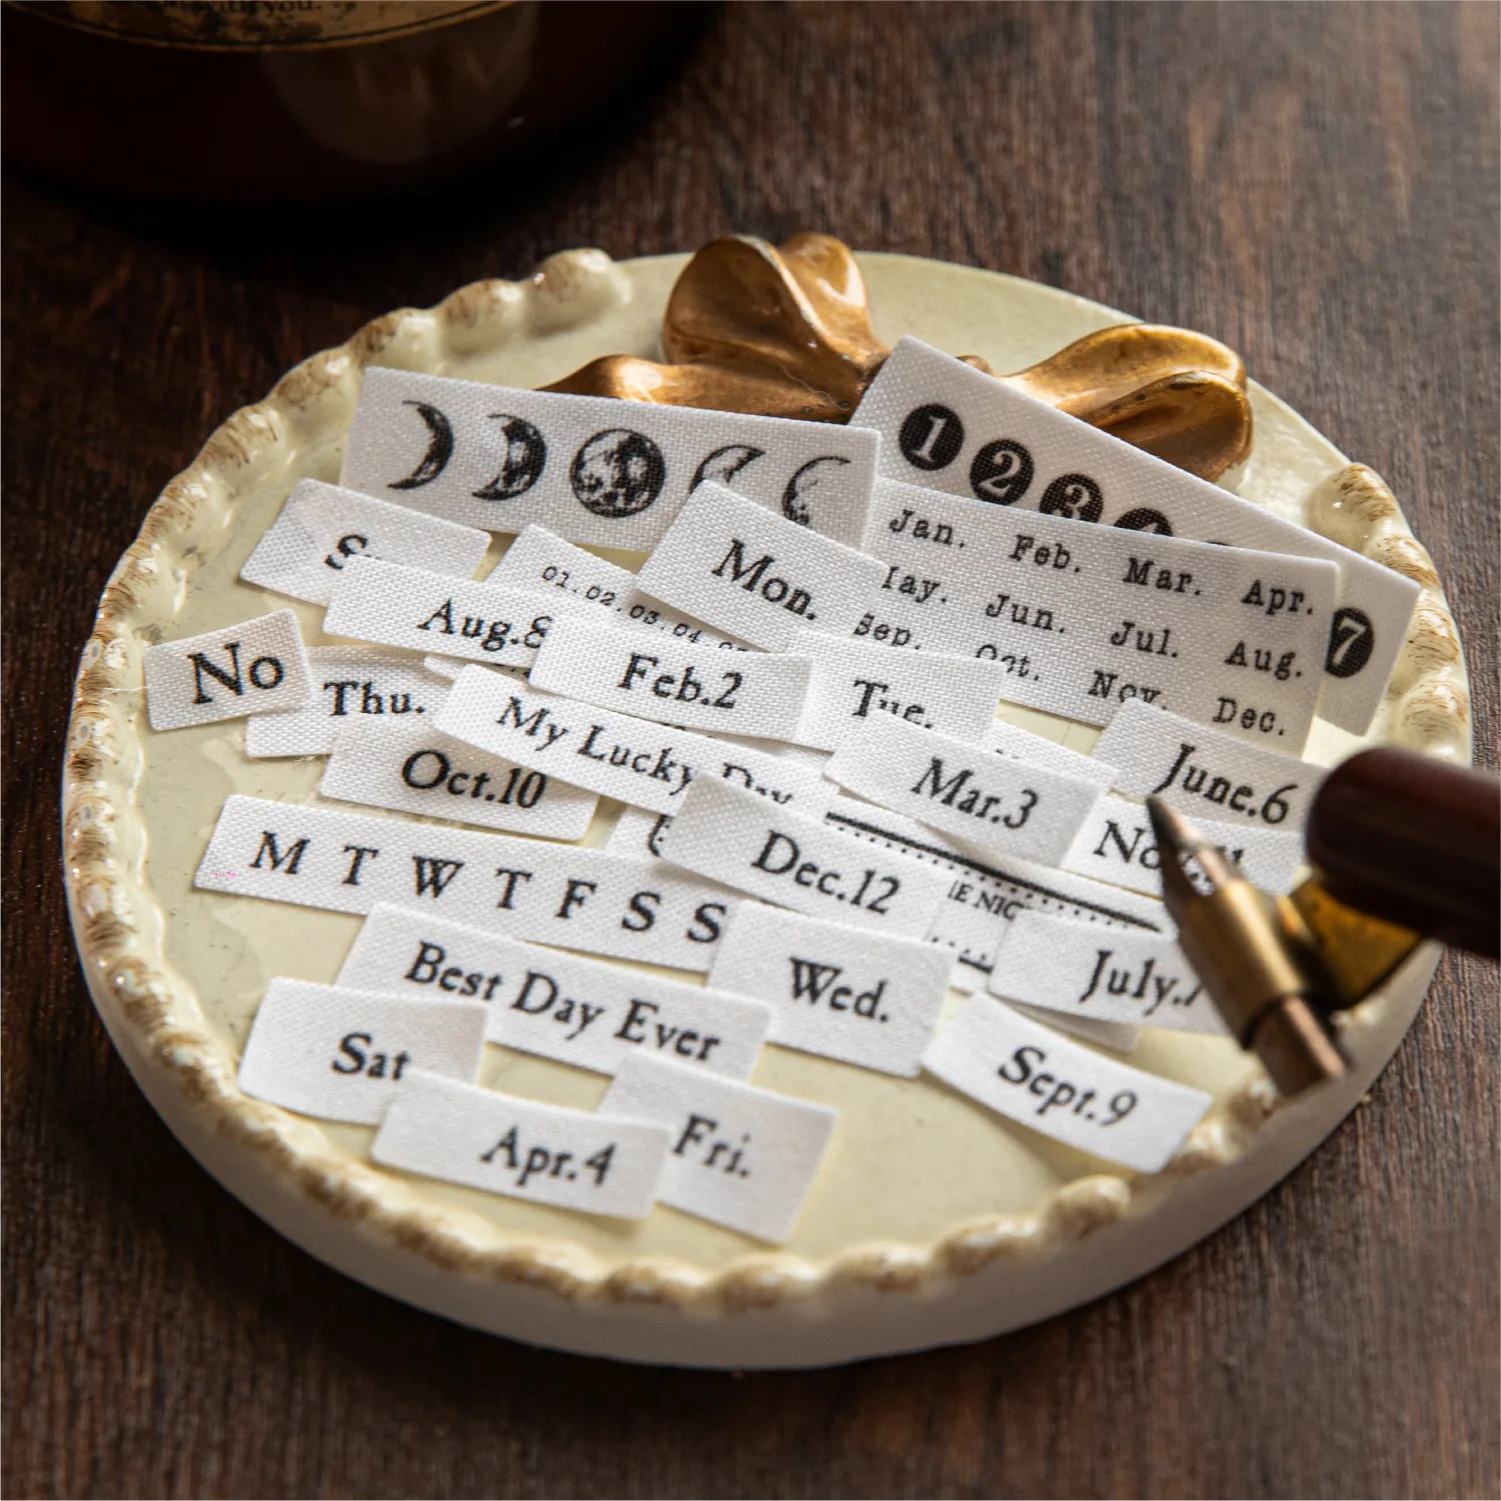 with you.
1 2 3 4
7
Jan. Feb. Mar. Apr.
Jun. Jul. Aug.
Sep. Oct. Nov. Dec.
01.02.03.04
Mon.
Aug.8
No
Thu.
Feb.2
Tue.
My Lucky Day
Oct.10
Mar.3
June.6
M T W T F S S
Dec.12
Best Day Ever
Wed.
July.7
Sat
Sept.9
Apr.4
Fri.